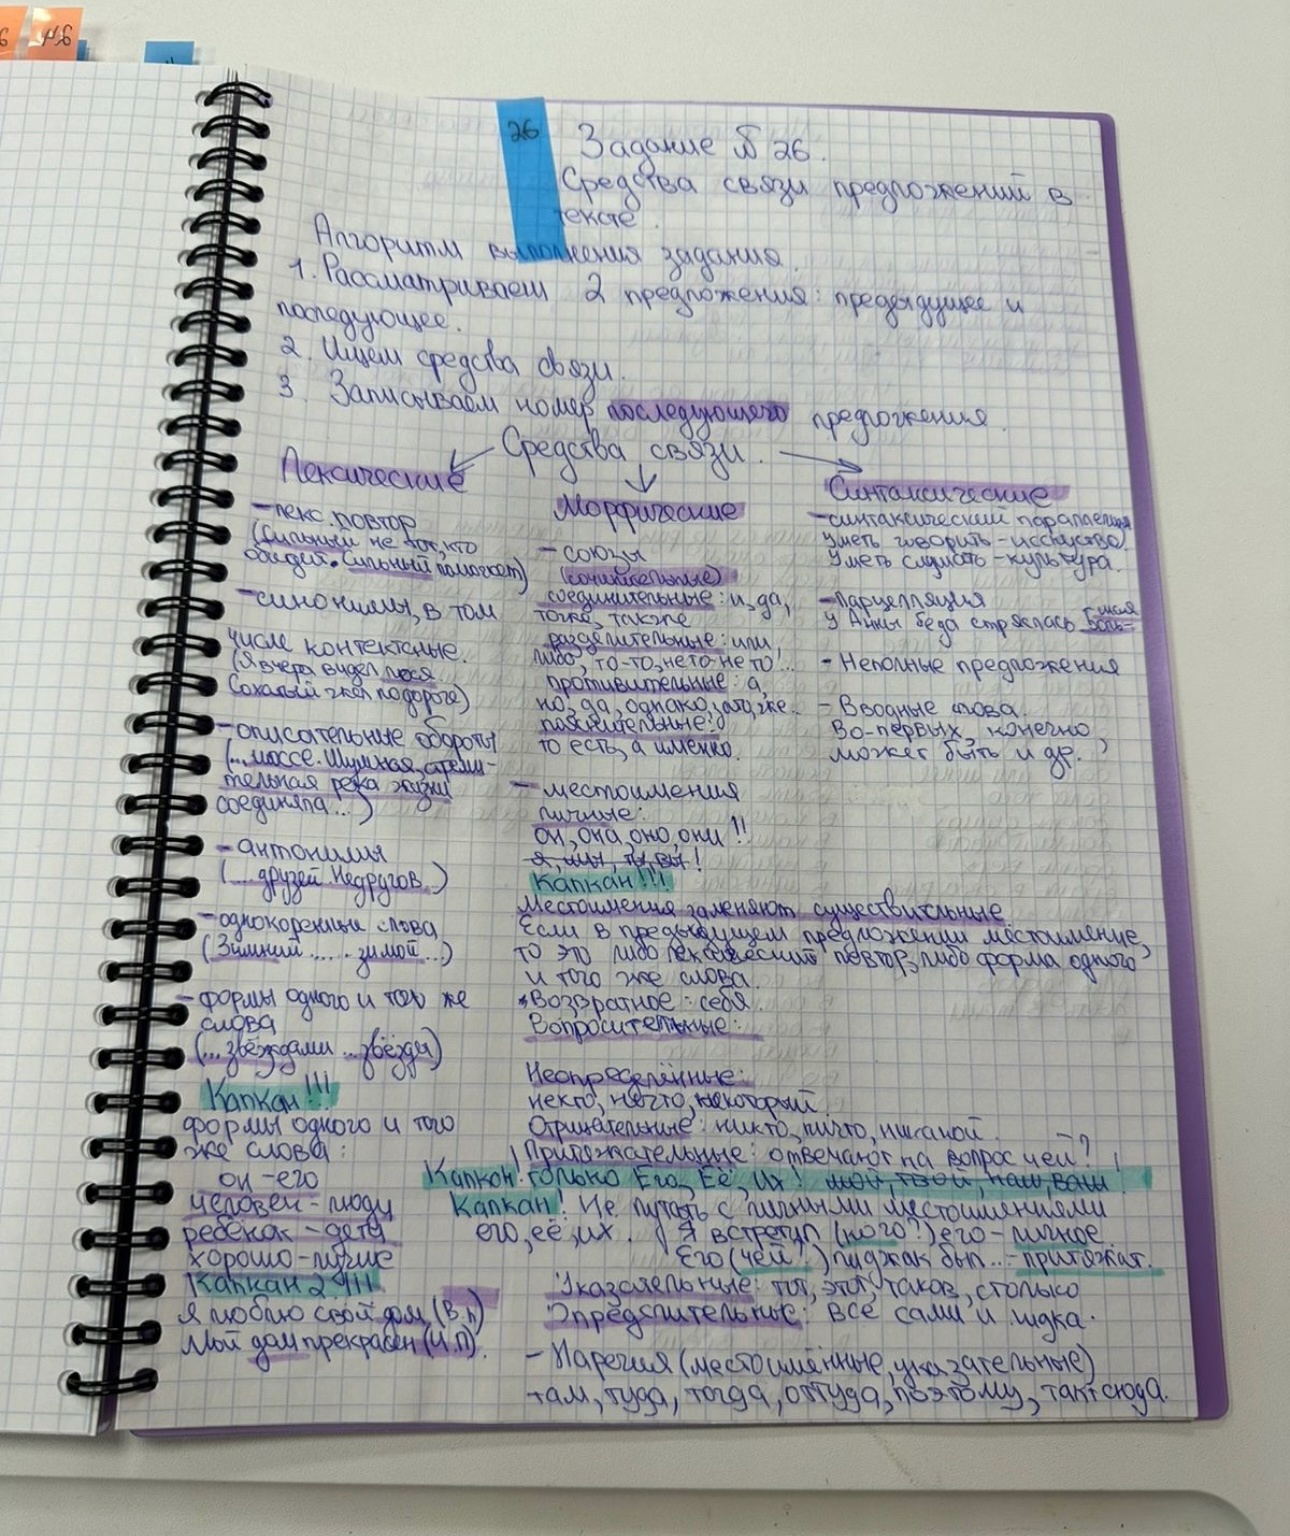 26
Задание №26.
Средства связи предложений в
тексте.
Алгоритм выполнения задания.
1. Рассматриваем 2 предложения: предыдущее и
последующее.
2. Ищем средства связи.
3. Записываем номер последующего предложения.
Средства связи.
Лексические
- лекс. повтор
(Сильный не тот, кто
обидит. Сильный помогает)
- синонимы, в том
числе контекстные.
(Я вчера видел лося.
Сохатый шел по дороге)
- описательные обороты
(...шоссе. Шумная, стреми-
тельная река жизни
соединяла...)
- антонимы
(....друзей. Недругов..)
- однокоренные слова
(Зимний..... зимой...)
- формы одного и того же
слова
(...звёздами ...звёзды)
Капкан!!!
формы одного и того
же слова:
он - его
человек - люди
ребёнок - дети
хорошо - лучше
Капкан 2!!!
Я люблю свой дом (В.п)
Мой дом прекрасен (И.П).
Морфические
- союзы
(сочинительные)
соединительные: и, да,
тоже, также
разделительные: или,
либо, то-то, не то-не то...
противительные: а,
но, да, однако, зато, же.
пояснительные:
то есть, а именно.
- местоимения
личные:
он, она, оно, они!!
я, мы, ты, вы!
Капкан!!!
Местоимения заменяют существительные.
Если в предыдущем предложении местоимение,
то это либо лексический повтор, либо форма одного
и того же слова.
Возвратное: себя.
Вопросительные:
Неопределённые:
некто, нечто, некоторый.
Отрицательные: никто, ничто, никакой.
Притяжательные: отвечают на вопрос чей?
Капкан! только Его, Её, Их! мой, твой, наш, ваш!
Капкан! Не путать с личными местоимениями
его, её, их. Я встретил (кого?) его - личное
Его (чей?) пиджак был... - притяжат.
Указательные: тот, этот, таков, столько
Определительные: все сами и
- Наречия (местоимённые, указательные)
там, туда, тогда, оттуда, поэтому, так, сюда.
Синтаксические
- синтаксический параллелизм
Уметь говорить - исскуство.
Уметь слушать - культура.
- Парцелляция
У Анны беда стряслась. Боль-
шая
- Неполные предложения
- Вводные слова.
Во-первых, конечно,
может быть и др.